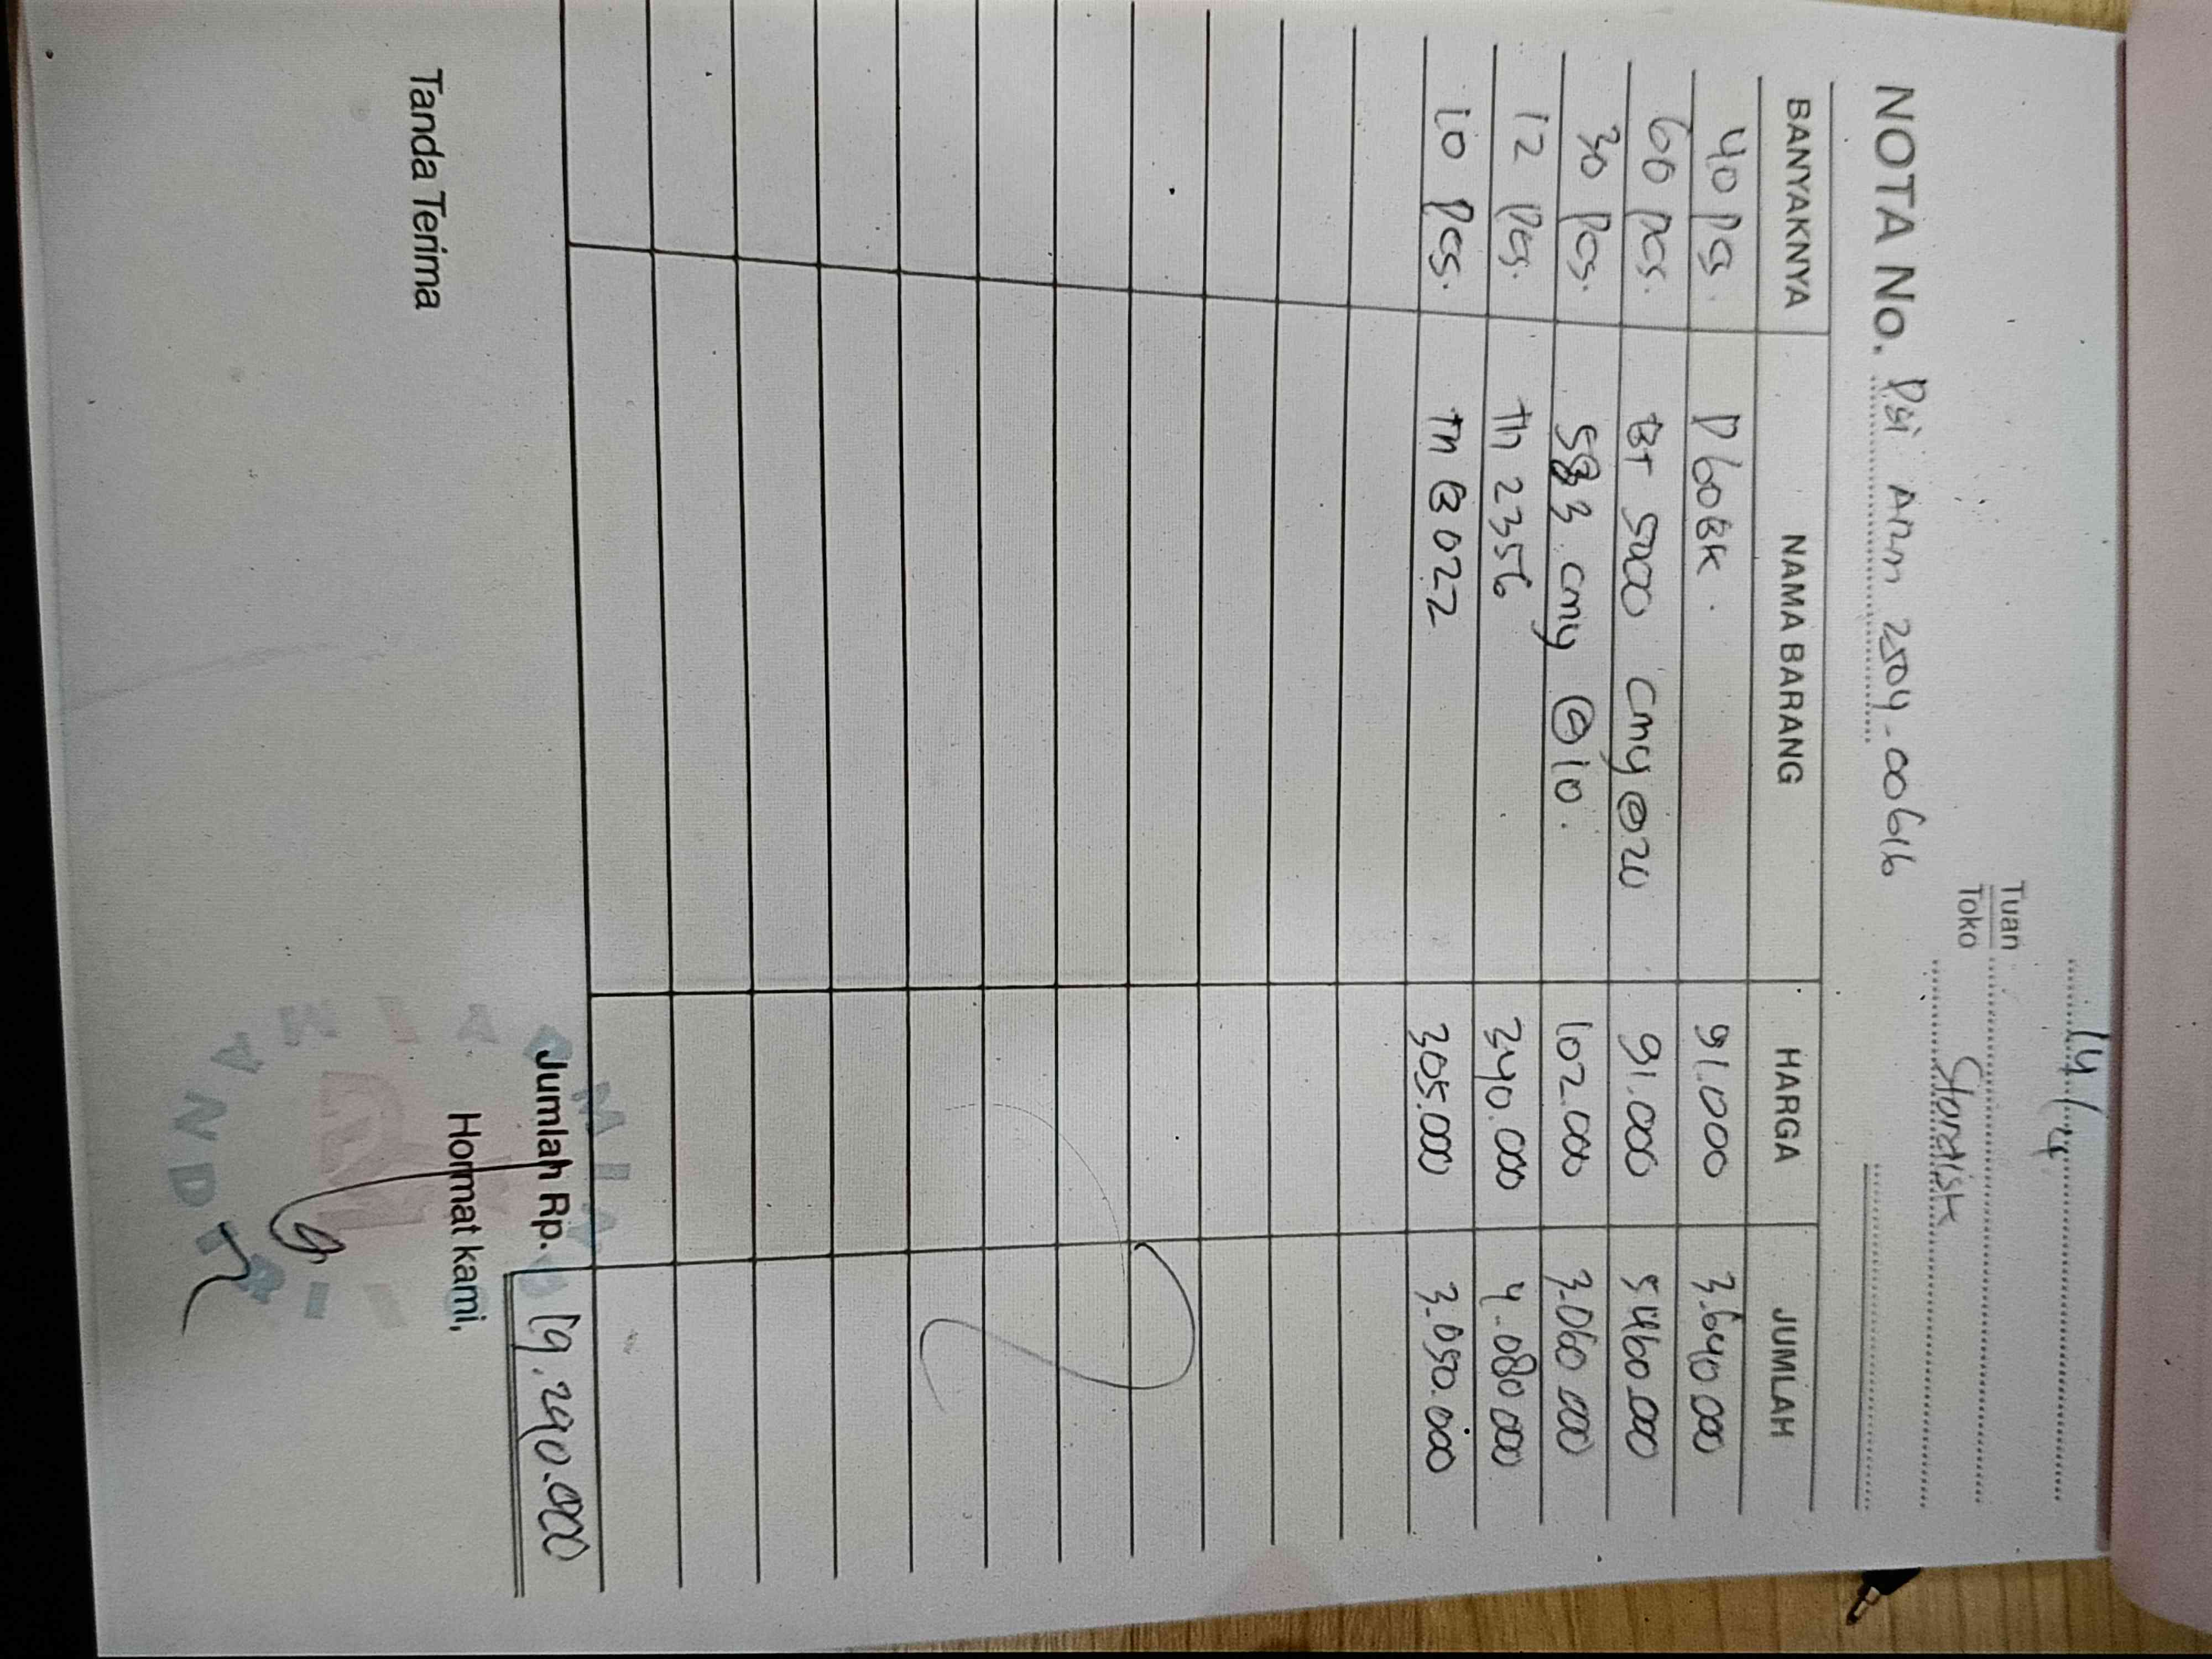 14/4
Tuan
Toko Stardisk
NOTA No. Psi Arm 2504-00616
BANYAKNYA NAMA BARANG HARGA JUMLAH
40 pcs. D60BK. 91.000 3.640.000
60 pcs. BT 5000 cmy @20 91.000 5.460.000
30 pcs. cmy @10. 102.000 3.060.000
12 pcs. Th 2356 340.000 4.080.000
10 pcs. Tn B022 305.000 3.050.000
Jumlah Rp. 19.290.000
Tanda Terima Hormat kami,